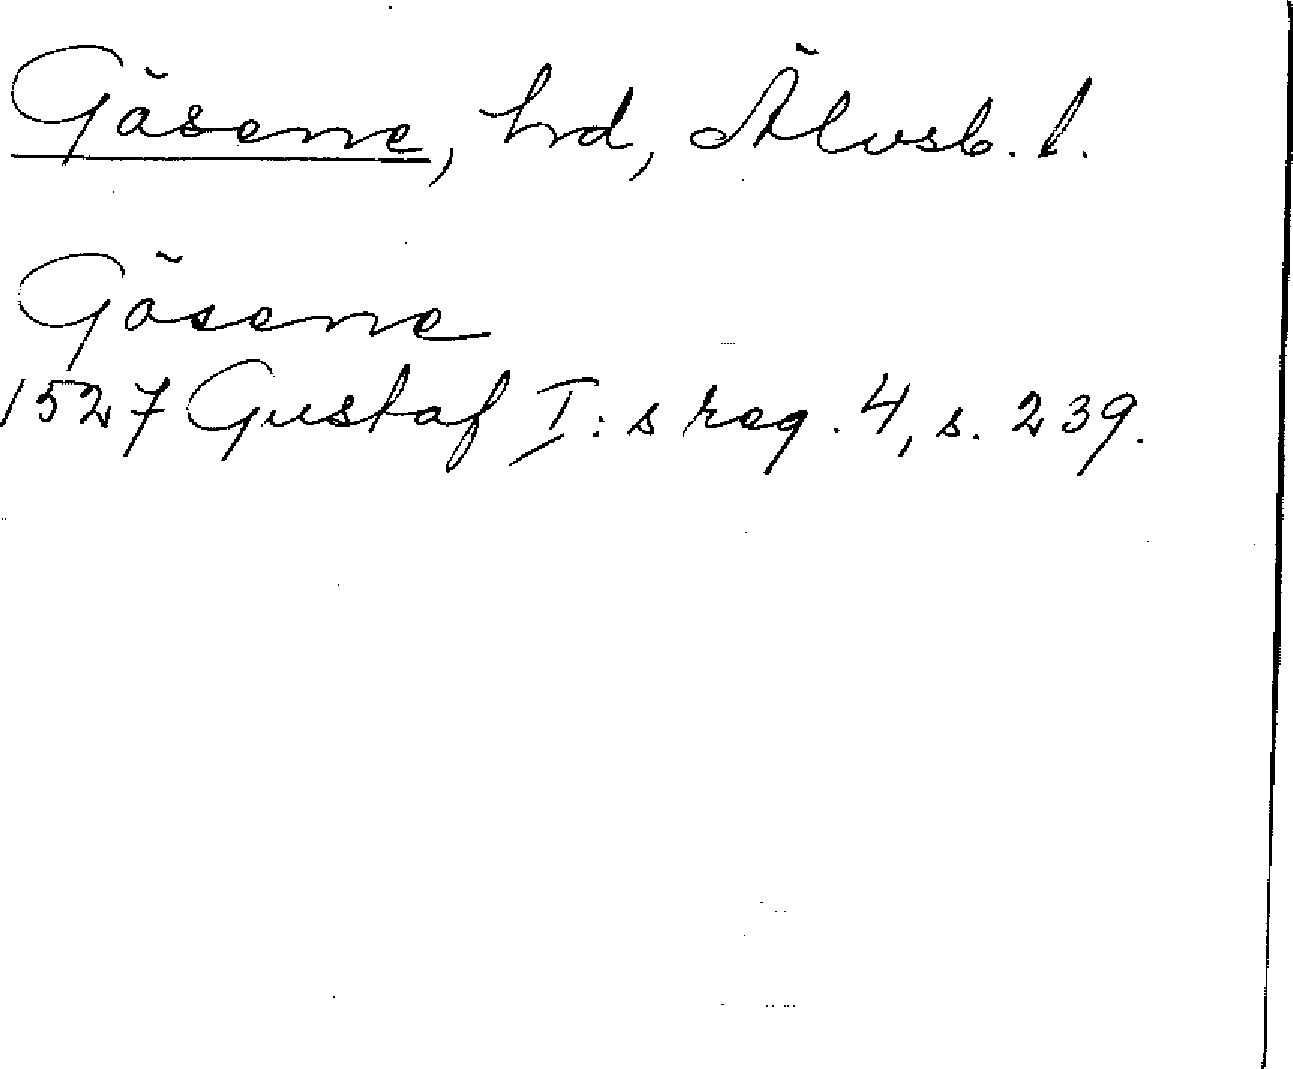 Gäsene, hd, Älvsb. l.
Gäsene
1527 Gustaf I:s reg. 4, s. 239.